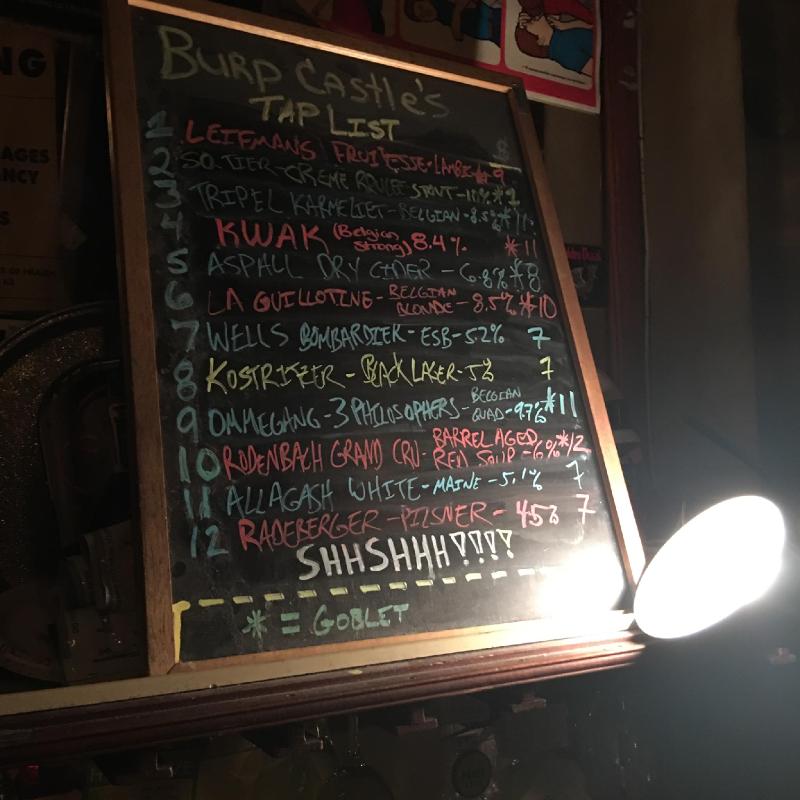 BURP CASTLE'S
TAP LIST
$
1 LEIFMANS FRUITESSE-LAMBIC *9
2 SO.TIER-CREME BRULEE STOUT-10% *9
3 TRIPEL KARMELIET-BELGIAN-8.5% *11
4 KWAK (Belgian Strong) 8.4% *11
5 ASPALL DRY CIDER - 6.8% *8
6 LA GUILLOTINE-BELGIAN BLONDE-8.5% *10
7 WELLS BOMBARDIER-ESB-5.2% 7
8 KOSTRITZER - BLACK LAGER-5% 7
9 OMMEGANG-3 PHILOSOPHERS-BELGIAN QUAD-9.7% *11
10 RODENBACH GRAND CRU-BARREL AGED RED SOUR-6% *12
11 ALLAGASH WHITE-MAINE-5.1% 7
12 RADEBERGER-PILSNER-4.5% 7
SHHSHHH!!!!
* = GOBLET
NG
AGES
NCY
S